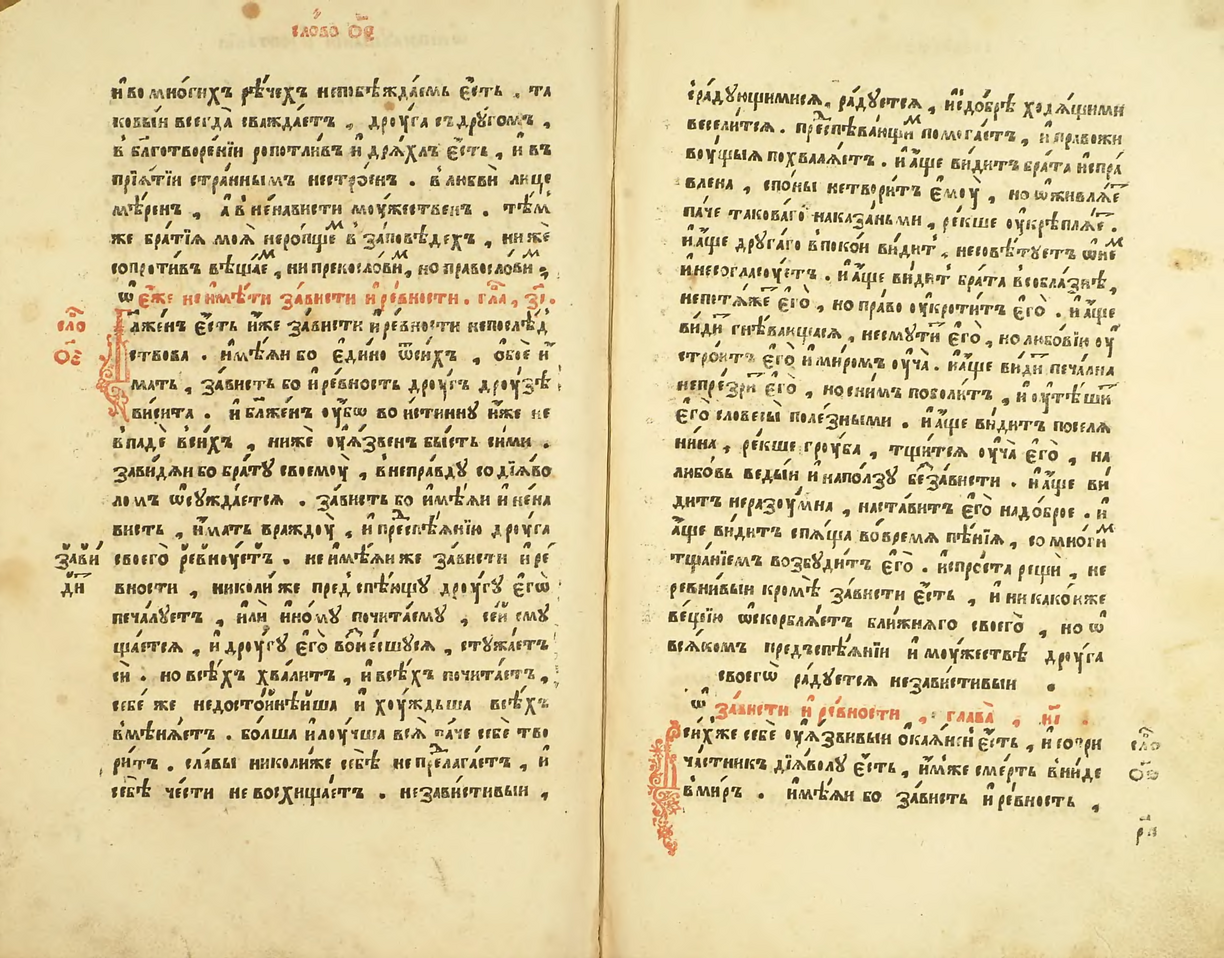 сло́во ѻ҃є
и҆ во мно́гихъ рѣ́чехъ непобѣжда́емь є҆́сть , та
ковы́и всегда̀ сважда́етъ , дрꙋ́га съ дрꙋ́гомъ ,
в бл҃готворе́нїи ропотли́въ и҆ дрѧ́хлъ є҆́сть , и҆ въ
прїѧ́тїи стра́ннымъ нестро́енъ . в любвѝ лице
мѣ́ренъ , а҆ в не́нависти мꙋ́жественъ . тѣ́мъ
же бра́тїѧ моѧ̀ неро́пщемъ в за́повѣдехъ , нижѐ
сопроти́въ вѣща́емъ , ни прекосло́вимъ , но правосло́вимъ ,
ѡ҆ є҆́же не и҆мѣ́ти за́висти и҆ ре́вности . гла̀ , з҃і .
сло́
ѻ҃ѕ
Блаже́нъ є҆́сть и҆́же за́висти и҆ ре́вности непослѣ́д
ствова . и҆мѣ́ѧи бо є҆ди́но ѿ си́хъ , ѻ҆бо́е и҆́
мать , за́висть бо и҆ ре́вность дрꙋ́гъ дрꙋ́зѣ
висита . и҆ бл҃же́нъ ᲂу҆́бѡ во и́стиннꙋ и҆́же не
впадѐ в си́хъ , нижѐ ᲂу҆ѧ́звенъ бы́сть си́ми .
зави́дѧи бо бра́тꙋ своемꙋ̀ , в непра́вдꙋ со дїѧ́во
ломъ ѡ҆сꙋжда́етсѧ . за́висть бо и҆мѣ́ѧи и҆ не́на
висть , и҆́мать враждꙋ̀ , и҆ преспѣ́ѧнїю дрꙋ́га
зави́
ди
своего̀ ревнꙋ́етъ . не и҆мѣ́ѧи же за́висти и҆ ре́
вности , николи́ же пред спѣ́ющꙋ дрꙋ́гꙋ є҆гѡ̀
печа́лꙋетъ , и҆лѝ и҆но́мꙋ почита́емꙋ , се́й смꙋ
ща́етсѧ , и҆ дрꙋ́гꙋ є҆го̀ воⷥне́сшꙋсѧ , стꙋжа́етъ
си . но всѣ́хъ хва́литъ , и҆ всѣ́хъ почита́етъ ,
себе́ же недосто́йнѣйша и҆ хꙋ́ждьша всѣ́хъ
вмѣнѧ́етъ . бо́лша и҆ лꙋ́чша всѧ̀ па́че себѐ тво
ри́тъ . сла́вы николи́же себѣ̀ не прелага́етъ , и҆
себѣ̀ че́сти не восхища́етъ . незави́стивыи ,
с ра́дꙋющимисѧ , ра́дꙋетсѧ , и҆ з до́брѣ ходѧ́щими
весели́тсѧ . преспѣва́ющимъ помога́етъ , и҆ пра́во жи
вꙋ́щыѧ похвалѧ́етъ . и҆ а҆́ще ви́дитъ бра́та и҆спра́
влена , спо́ны не твори́тъ є҆мꙋ̀ , но ѡ҆живлѧ́етъ
па́че такова́го наказа́ньми , ре́кше ᲂу҆крѣплѧ́етъ .
и҆ а҆́ще дрꙋга́го в поко́и ви́дитъ , несовѣ́тꙋетъ ѡ҆ не́мъ
и҆ несогласꙋ́етъ . и҆ а҆́ще ви́дитъ бра́та в собла́знѣ ,
непетѧ́жетъ є҆го̀ , но пра́во ᲂу҆кроти́тъ є҆го̀ . и҆ а҆́ще
ви́дитъ гнѣ́вающасѧ , несмꙋти́тъ є҆го̀ , но любо́вїю ᲂу҆
стро́итъ є҆го̀ и҆ ми́ромъ ᲂу҆ча̀ . и҆ а҆́ще ви́дитъ печа́лна
непре́зритъ є҆го̀ , но с ни́мъ поболи́тъ , и҆ ᲂу҆тѣ́шитъ
є҆го̀ словесы̀ поле́зными . и҆ а҆́ще ви́дитъ поселѧ́
нина , ре́кше грꙋ́ба , тщи́тсѧ ᲂу҆ча̀ є҆го̀ , на
любо́вь ведыи и҆ на по́лзꙋ без за́висти . и҆ а҆́ще ви́
дитъ неразꙋ́мна , наста́витъ є҆го̀ на до́брое . и҆
а҆́ще ви́дитъ спѧ́ща во вре́мѧ пѣ́нїѧ , со мно́гимъ
тща́нїемъ возбꙋди́тъ є҆го̀ . и҆ про́ста рещѝ , не
ревни́выи кромѣ̀ за́висти є҆́сть , и҆ ни како́и же
ве́щїю ѡ҆скорблѧ́етъ бли́жнѧго своего̀ , но ѡ҆
всѧ́комъ предъспѣ́ѧнїи и҆ мꙋ́жествѣ дрꙋ́га
своегѡ̀ ра́дꙋетсѧ незави́стивыи .
ѡ҆ за́висти и҆ ре́вности , глава̀ , и҃і .
сло́
ѻ҃з
Си́хже себѐ ᲂу҆ѧ́звивыи ѻ҆каѧ́ннєи є҆́сть , и҆ сопри
ча́стникъ дїѧ́волꙋ є҆́сть , и҆́мже сме́рть вни́де
в ми́ръ . и҆мѣ́ѧи бо за́висть и҆ ре́вность ,